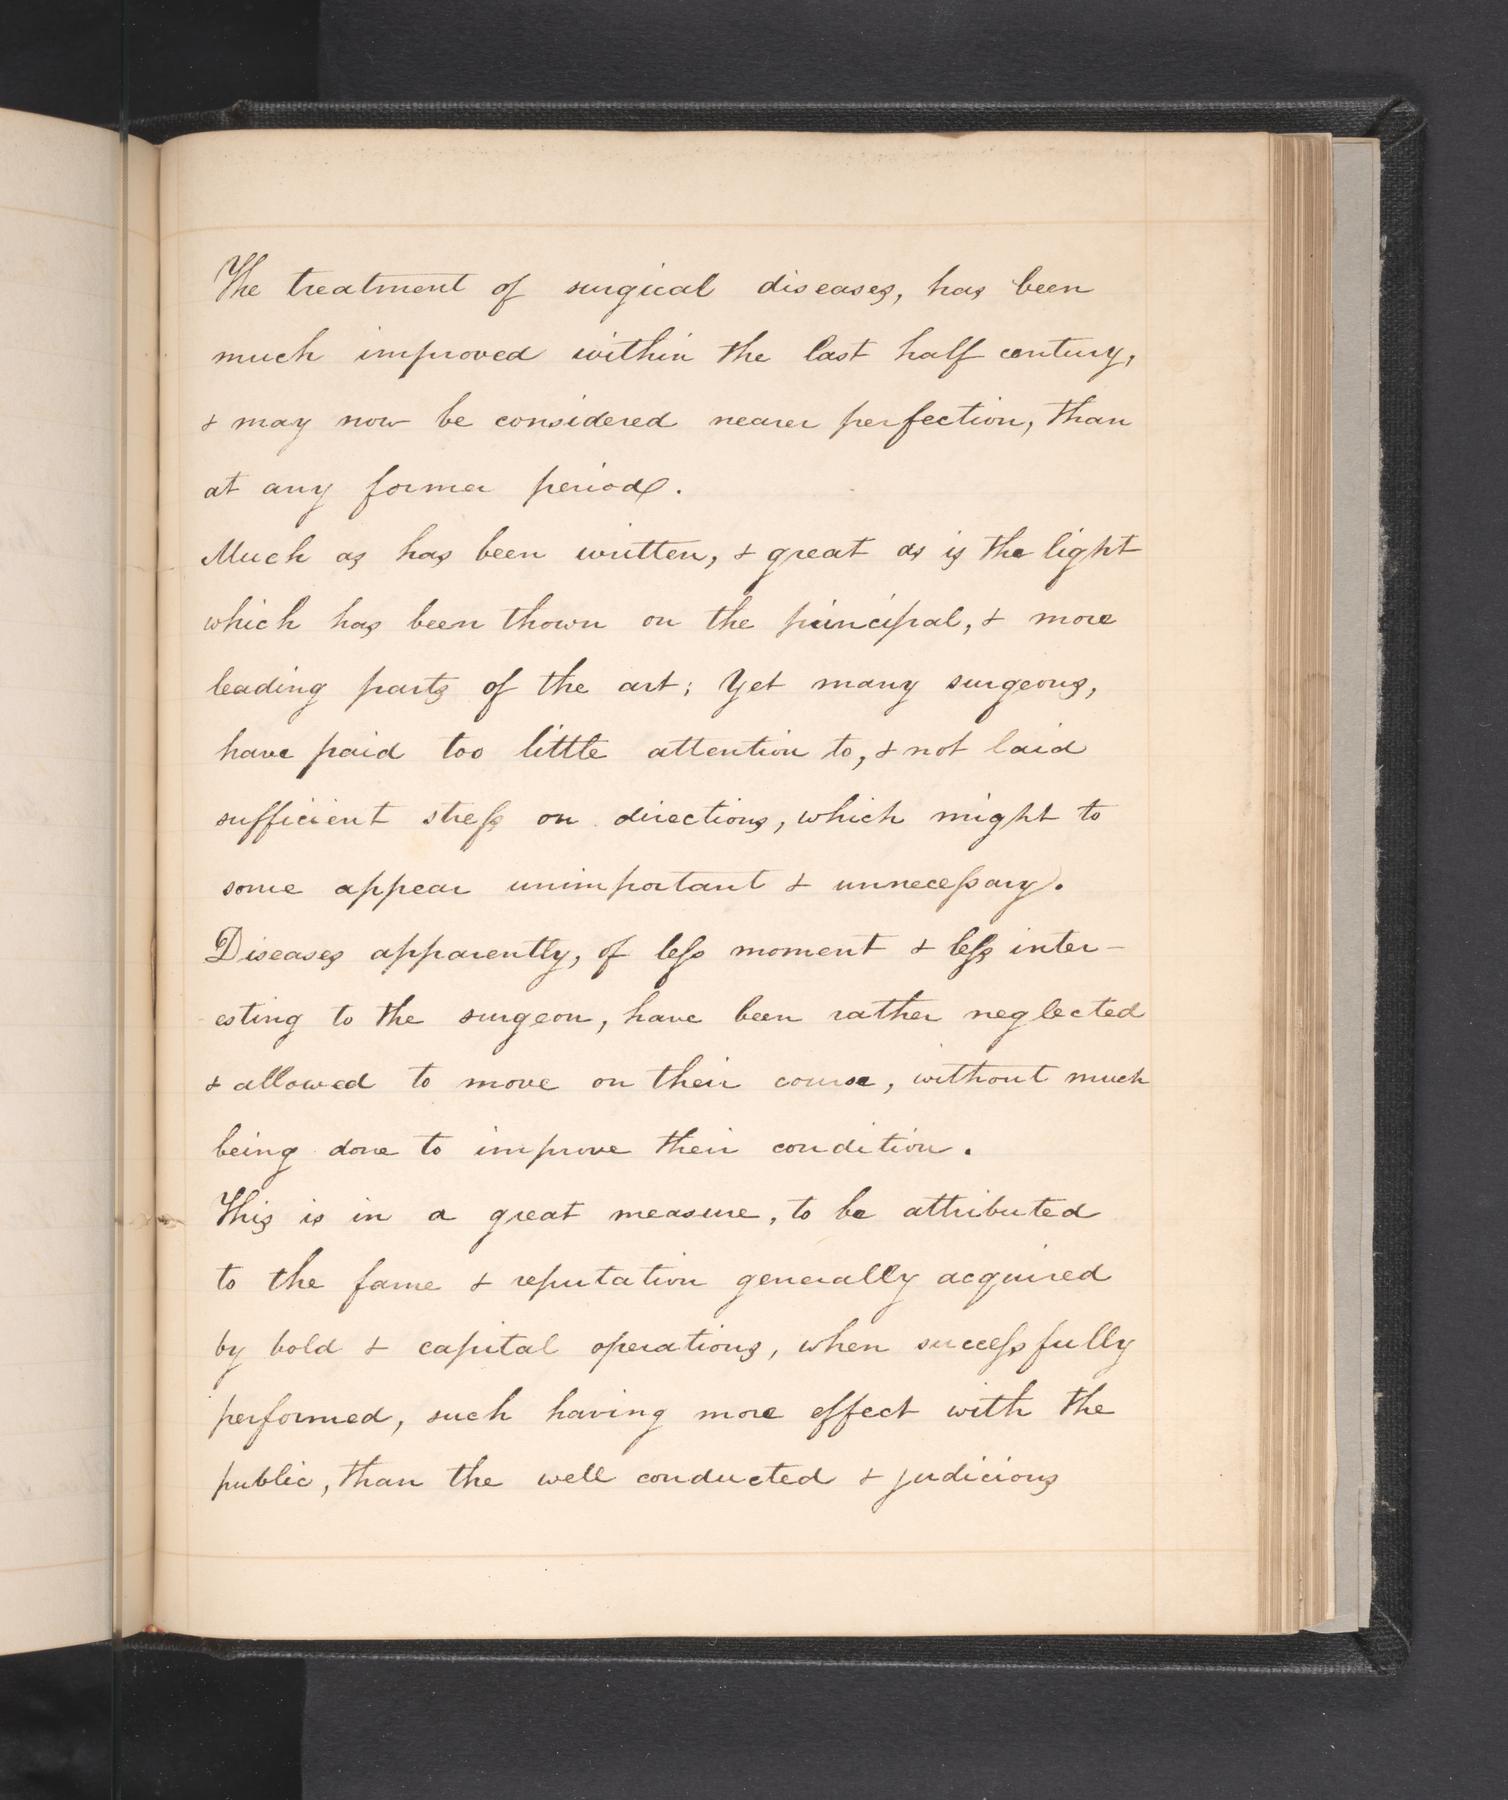 The treatment of surgical diseases, has been
much improved within the last half century,
& may now be considered nearer perfection, than
at any former period.
Much as has been written, & great as is the light
which has been thown on the principal, & more
leading parts of the art; Yet many surgeons,
have paid too little attention to, & not laid
sufficient stress on directions, which might to
some appear unimportant & unnecessary.
Diseases apparently, of less moment & less inter-
esting to the surgeon, have been rather neglected
& allowed to move on their course, without much
being done to improve their condition.
This is in a great measure, to be attributed
to the fame & reputation generally acquired
by bold & capital operations, when successfully
performed, such having more effect with the
public, than the well conducted & judicious